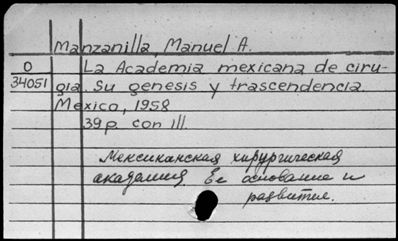 Manzanilla, Manuel A.
O La Academia mexicana de ciru-
34051 gia. Su genesis y trascendencia.
Mexico, 1958
39 p. con ill.
Мексиканская хирургическая
академия. Ее основание и
развитие.